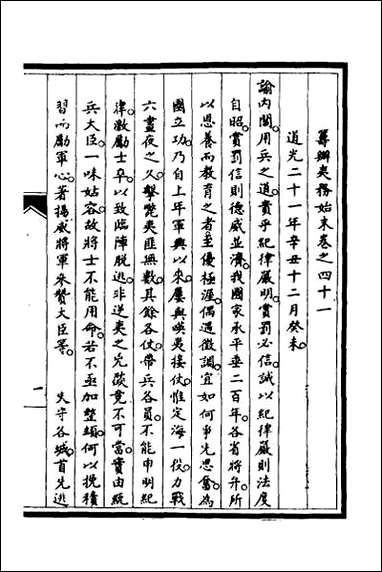 籌辦夷務始末卷之四十一
道光二十一年辛丑十二月癸未
諭內閣。用兵之道。貴乎紀律嚴明。賞罰必信。誠以紀律嚴則法度
自昭。賞罰信則德威並濟。我國家承平垂二百年。各省將弁。所
以恩養而教育之者。至優極渥。偶遇徵調。宜如何事先思奮。為
國立功。乃自上年軍興以來。屢與㗸夷接仗。惟定海一役。力戰
六晝夜之久。擊斃夷匪無數。其餘各仗。帶兵各員。不能申明紀
律。激勵士卒。以致臨陣脫逃。非逆夷之兇燄竟不可當。實由統
兵大臣。一味姑容。故將士不能用命。若不亟加整頓。何以挽積
習而勵軍心。著揚威將軍參贊大臣等。 失守各城。首先逃
一